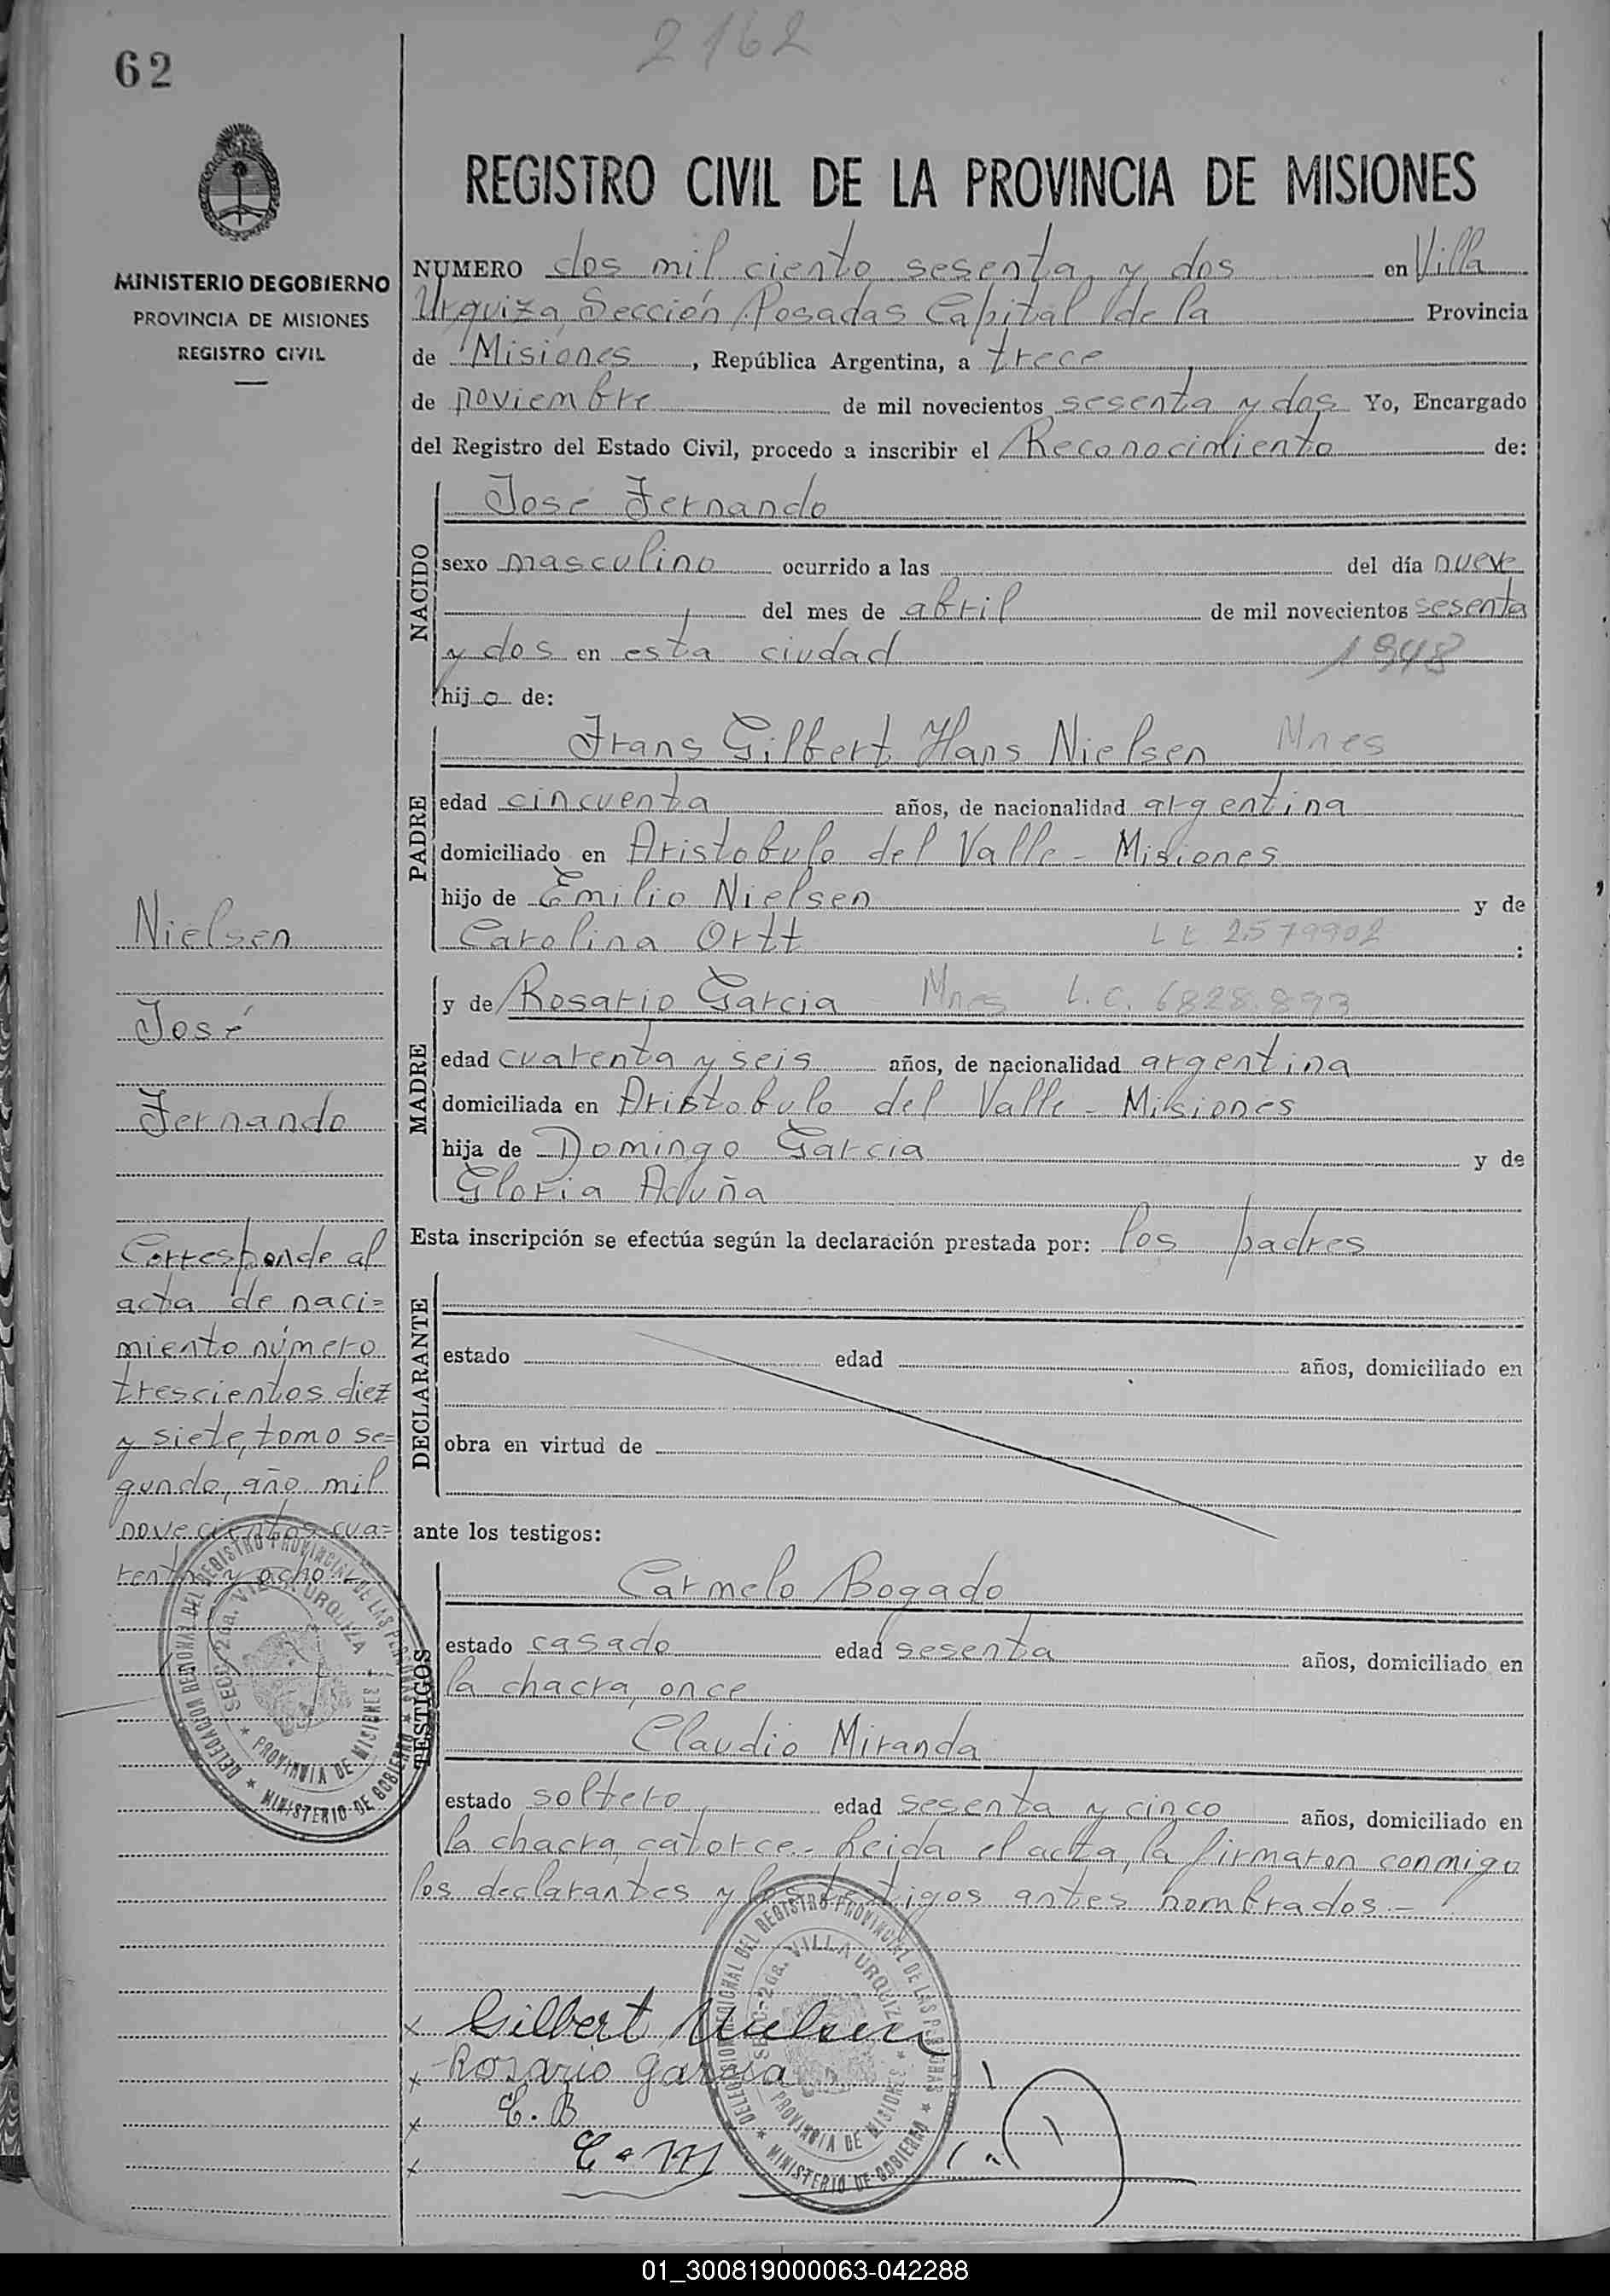 62
2162
MINISTERIO DE GOBIERNO
PROVINCIA DE MISIONES
REGISTRO CIVIL
REGISTRO CIVIL DE LA PROVINCIA DE MISIONES
NUMERO dos mil ciento sesenta y dos en Villa
Urquiza Sección Posadas Capital de la Provincia
de Misiones, República Argentina, a trece
de noviembre de mil novecientos sesenta y dos Yo, Encargado
del Registro del Estado Civil, procedo a inscribir el Reconocimiento de:
NACIDO
José Fernando
sexo masculino ocurrido a las del día nueve
del mes de abril de mil novecientos sesenta
y dos en esta ciudad 1948
hijo de:
PADRE
Frans Gilbert Hans Nielsen Mnes
edad cincuenta años, de nacionalidad argentina
domiciliado en Aristobulo del Valle - Misiones
hijo de Emilio Nielsen y de
Carolina Ortt L E 2579902 :
MADRE
y de Rosario Garcia Mnes L.C. 6828.893
edad cuarenta y seis años, de nacionalidad argentina
domiciliada en Aristobulo del Valle - Misiones
hija de Domingo Garcia y de
Gloria Acuña
Esta inscripción se efectúa según la declaración prestada por: los padres
DECLARANTE
estado edad años, domiciliado en
obra en virtud de
ante los testigos:
TESTIGOS
Carmelo Bogado
estado casado edad sesenta años, domiciliado en
la chacra once
Claudio Miranda
estado soltero edad sesenta y cinco años, domiciliado en
la chacra catorce.- Leida el acta, la firmaron conmigo
los declarantes y los testigos antes nombrados.-
Nielsen
José
Fernando
Corresponde al
acta de naci=
miento número
trescientos diez
y siete, tomo se=
gundo, año mil
novecientos cua=
renta y ocho
DELEGACION REGIONAL DEL REGISTRO PROVINCIAL DE LAS PERSONAS
SECC. 2da. VILLA URQUIZA
PROVINCIA DE MISIONES
MINISTERIO DE GOBIERNO
x Gilbert Nielsen
x Rosario Garcia
x C. B
x C. M
DELEGACION REGIONAL DEL REGISTRO PROVINCIAL DE LAS PERSONAS
SECC. 2da. VILLA URQUIZA
PROVINCIA DE MISIONES
MINISTERIO DE GOBIERNO
01_300819000063-042288